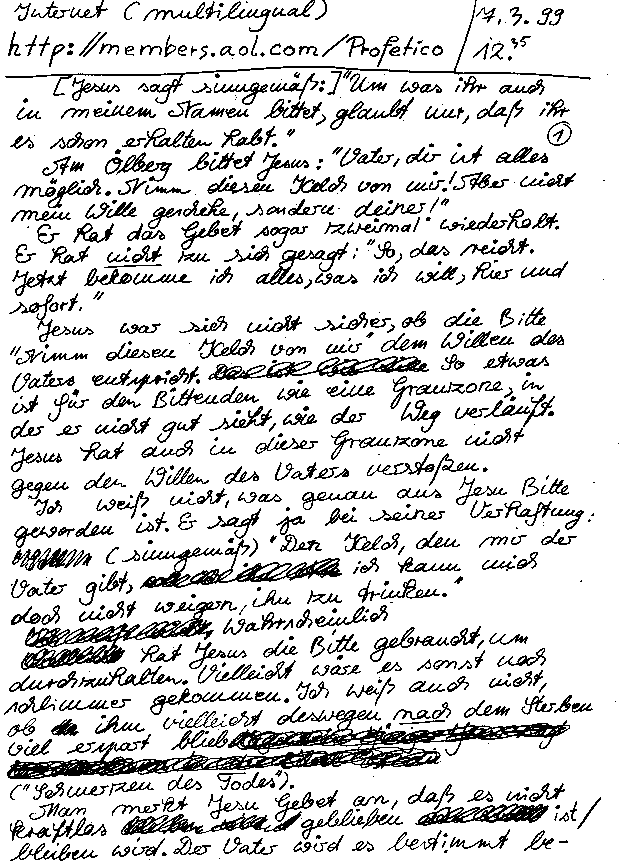 Internet (multilingual)
7.3.99
http://members.aol.com/Profetico
12.35
[Jesus sagt sinngemäß:] "Um was ihr auch
in meinem Namen bittet, glaubt nur, daß ihr
es schon erhalten habt."
1
Am Ölberg bittet Jesus: "Vater, dir ist alles
möglich. Nimm diesen Kelch von mir! Aber nicht
mein Wille geschehe, sondern deiner!"
Er hat das Gebet sogar zweimal wiederholt.
Er hat nicht zu sich gesagt: "So, das reicht.
Jetzt bekomme ich alles, was ich will, hier und
sofort."
Jesus war sich nicht sicher, ob die Bitte
"Nimm diesen Kelch von mir" dem Willen des
Vaters entspricht. So etwas
ist für den Bittenden wie eine Grauzone, in
der er nicht gut sieht, wie der Weg verläuft.
Jesus hat auch in dieser Grauzone nicht
gegen den Willen des Vaters verstoßen.
Ich weiß nicht, was genau aus Jesu Bitte
geworden ist. Er sagt ja bei seiner Verhaftung:
(sinngemäß) "Den Kelch, den mir der
Vater gibt, ich kann mich
doch nicht weigern, ihn zu trinken."
Wahrscheinlich
hat Jesus die Bitte gebraucht, um
durchzuhalten. Vielleicht wäre es sonst noch
schlimmer gekommen. Ich weiß auch nicht,
ob ihm vielleicht deswegen nach dem Sterben
viel erspart blieb
("Schmerzen des Todes").
Man merkt Jesu Gebet an, daß es nicht
kraftlos geblieben ist/
bleiben wird. Der Vater wird es bestimmt be-